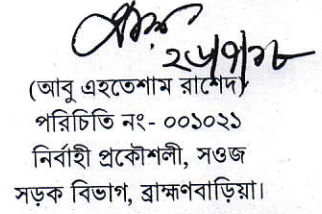 ২৮/৭/১৮
(আবু এহতেশাম রাশেদ)
পরিচিতি নং- ০০১০২১
নির্বাহী প্রকৌশলী, সওজ
সড়ক বিভাগ, ব্রাহ্মণবাড়িয়া।